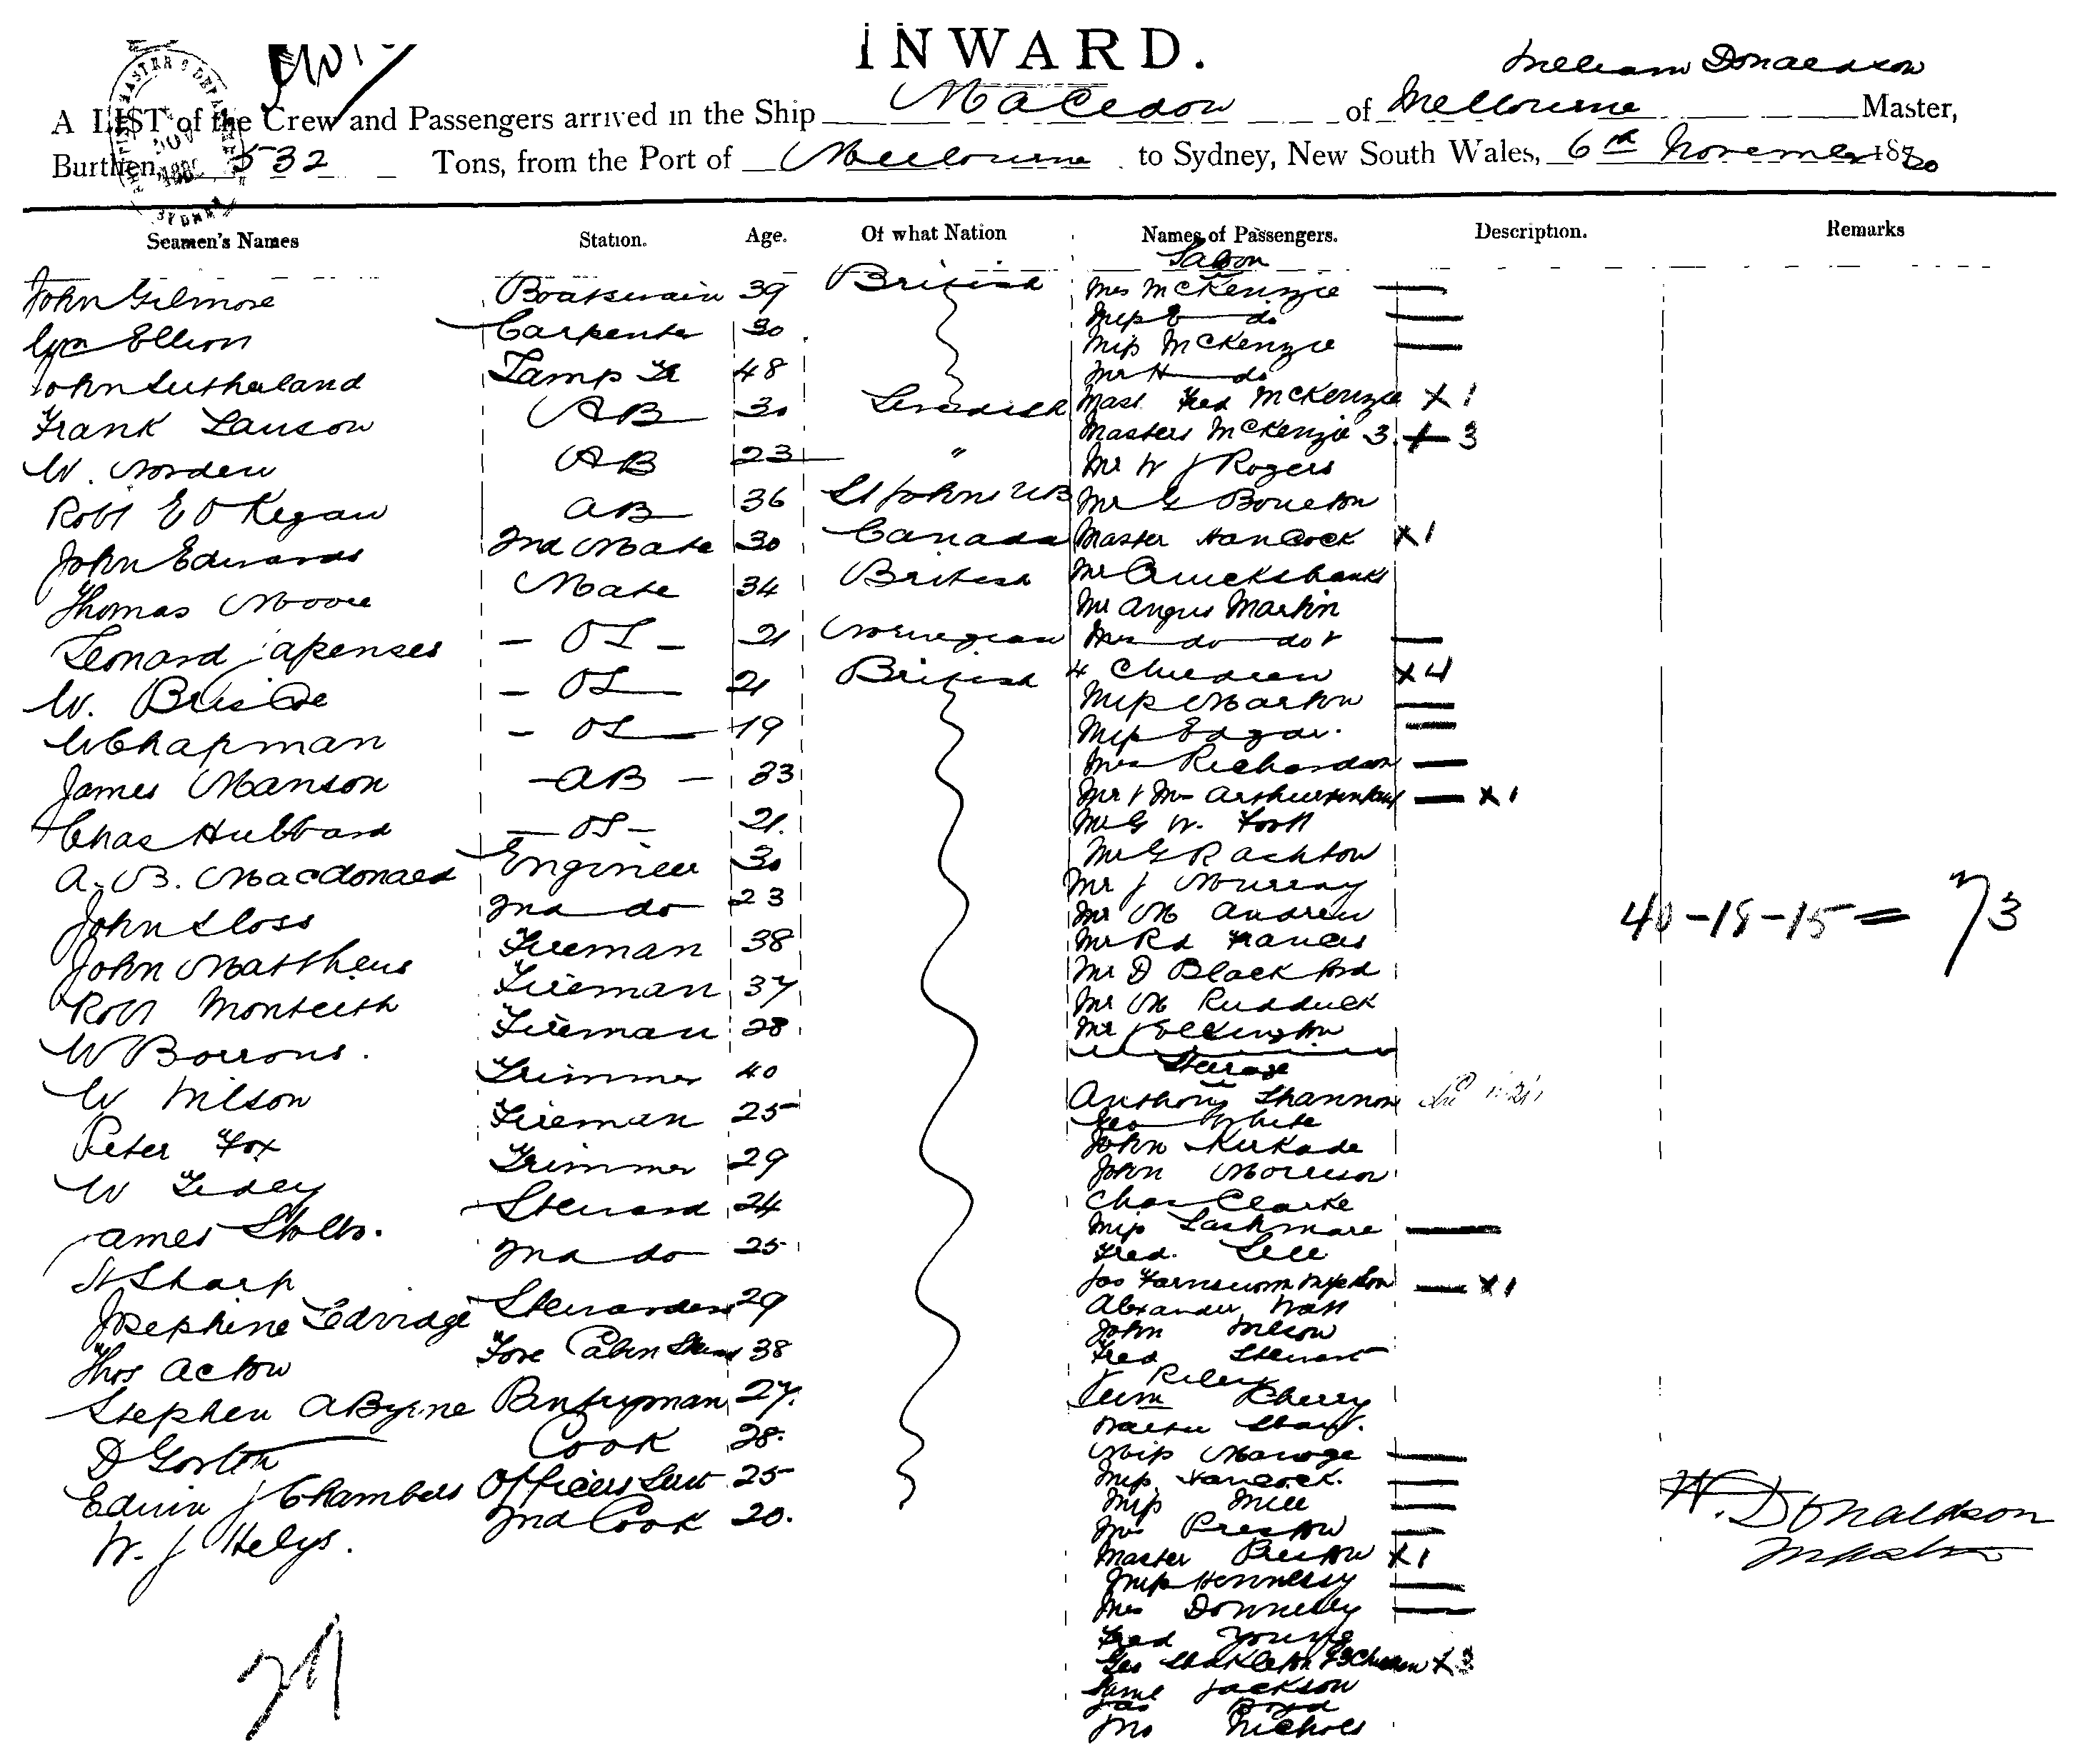 INWARD.
William Donaldson
A LIST of the Crew and Passengers arrived in the Ship Macedon of Melbourne Master,
Burthen 532 Tons, from the Port of Melbourne to Sydney, New South Wales, 6th November 1880
Seamen's Names Station. Age. Of what Nation Names of Passengers. Description. Remarks
Saloon
John Gilmore Boatswain 39 British Mrs McKenzie —
Ellion Carpenter 30 Miss E do —
John Sutherland Lamp Tr 48 Miss McKenzie —
Mr H do
Frank Lauson AB 30 Swedish Mast Fred McKenzie X 1
Masters McKenzie 3 X 3
W. Norden AB 23 " Mr W J Rogers
Robt E O Kegan AB 36 St Johns NB Mr G Boulton
John Edwards 2nd Mate 30 Canada Master Hancock X 1
Thomas Moore Mate 34 British Mr Cruickshanks
Mr Angus Martin
Leonard Japenses - OS - 21 Norwegian Mrs do do &
W. Bris - OS 21 British 4 Children X 4
Miss Marton —
W Chapman - OS 19 Miss Edgar. —
James Manson - AB - 33 Mrs Richardson —
Mr & Mrs Arthur — X 1
Chas Hubbard - OS - 21. Mr G W. Foott
A. B. Macdonald Engineer 30 Mr G R Ashton
Mr J Murray
John Sloss 2nd do 23 Mr M Andrew
40-18-15 = 73
John Matthews Fireman 38 Mr Rd Francis
Mr D Blackford
Robt Monteith Fireman 37 Mr M Rudduck
W Borrons. Fireman 28 Mr J Elkington
Steerage
W Wilson Trimmer 40 Anthony Shannon
Peter Fox Fireman 25 Geo White
John Kirkade
W Tidey Trimmer 29 John Morrison
James Stolts. Steward 24 Chas Clarke
Miss Lashmare —
H Sharp 2nd do 25 Fred. Sell
Josephine Ledridge Stewardess 29 Jas Farnsworth Wife & Son — X 1
Alexander Watt
Thos Acton Fore Cabin Stewd 38 John Wilson
Fred Stewart
Stephen A Byrne Pantryman 27. J Riley
Wm Cherry
D Gorton Cook 28. Walter Sharp.
Miss —
Edwin J Chambers Officers Servt 25 Miss Hancock. —
W. J Helys. 2nd Cook 20. Miss Mill —
W. Donaldson
Master
Mrs Preston —
Master Preston X 1
Miss Hennessy —
Mrs Donnelly —
Fred Young
Geo Shakleton & 3 Children X 3
Saml Jackson
Jas Boyd
Jno Nichols